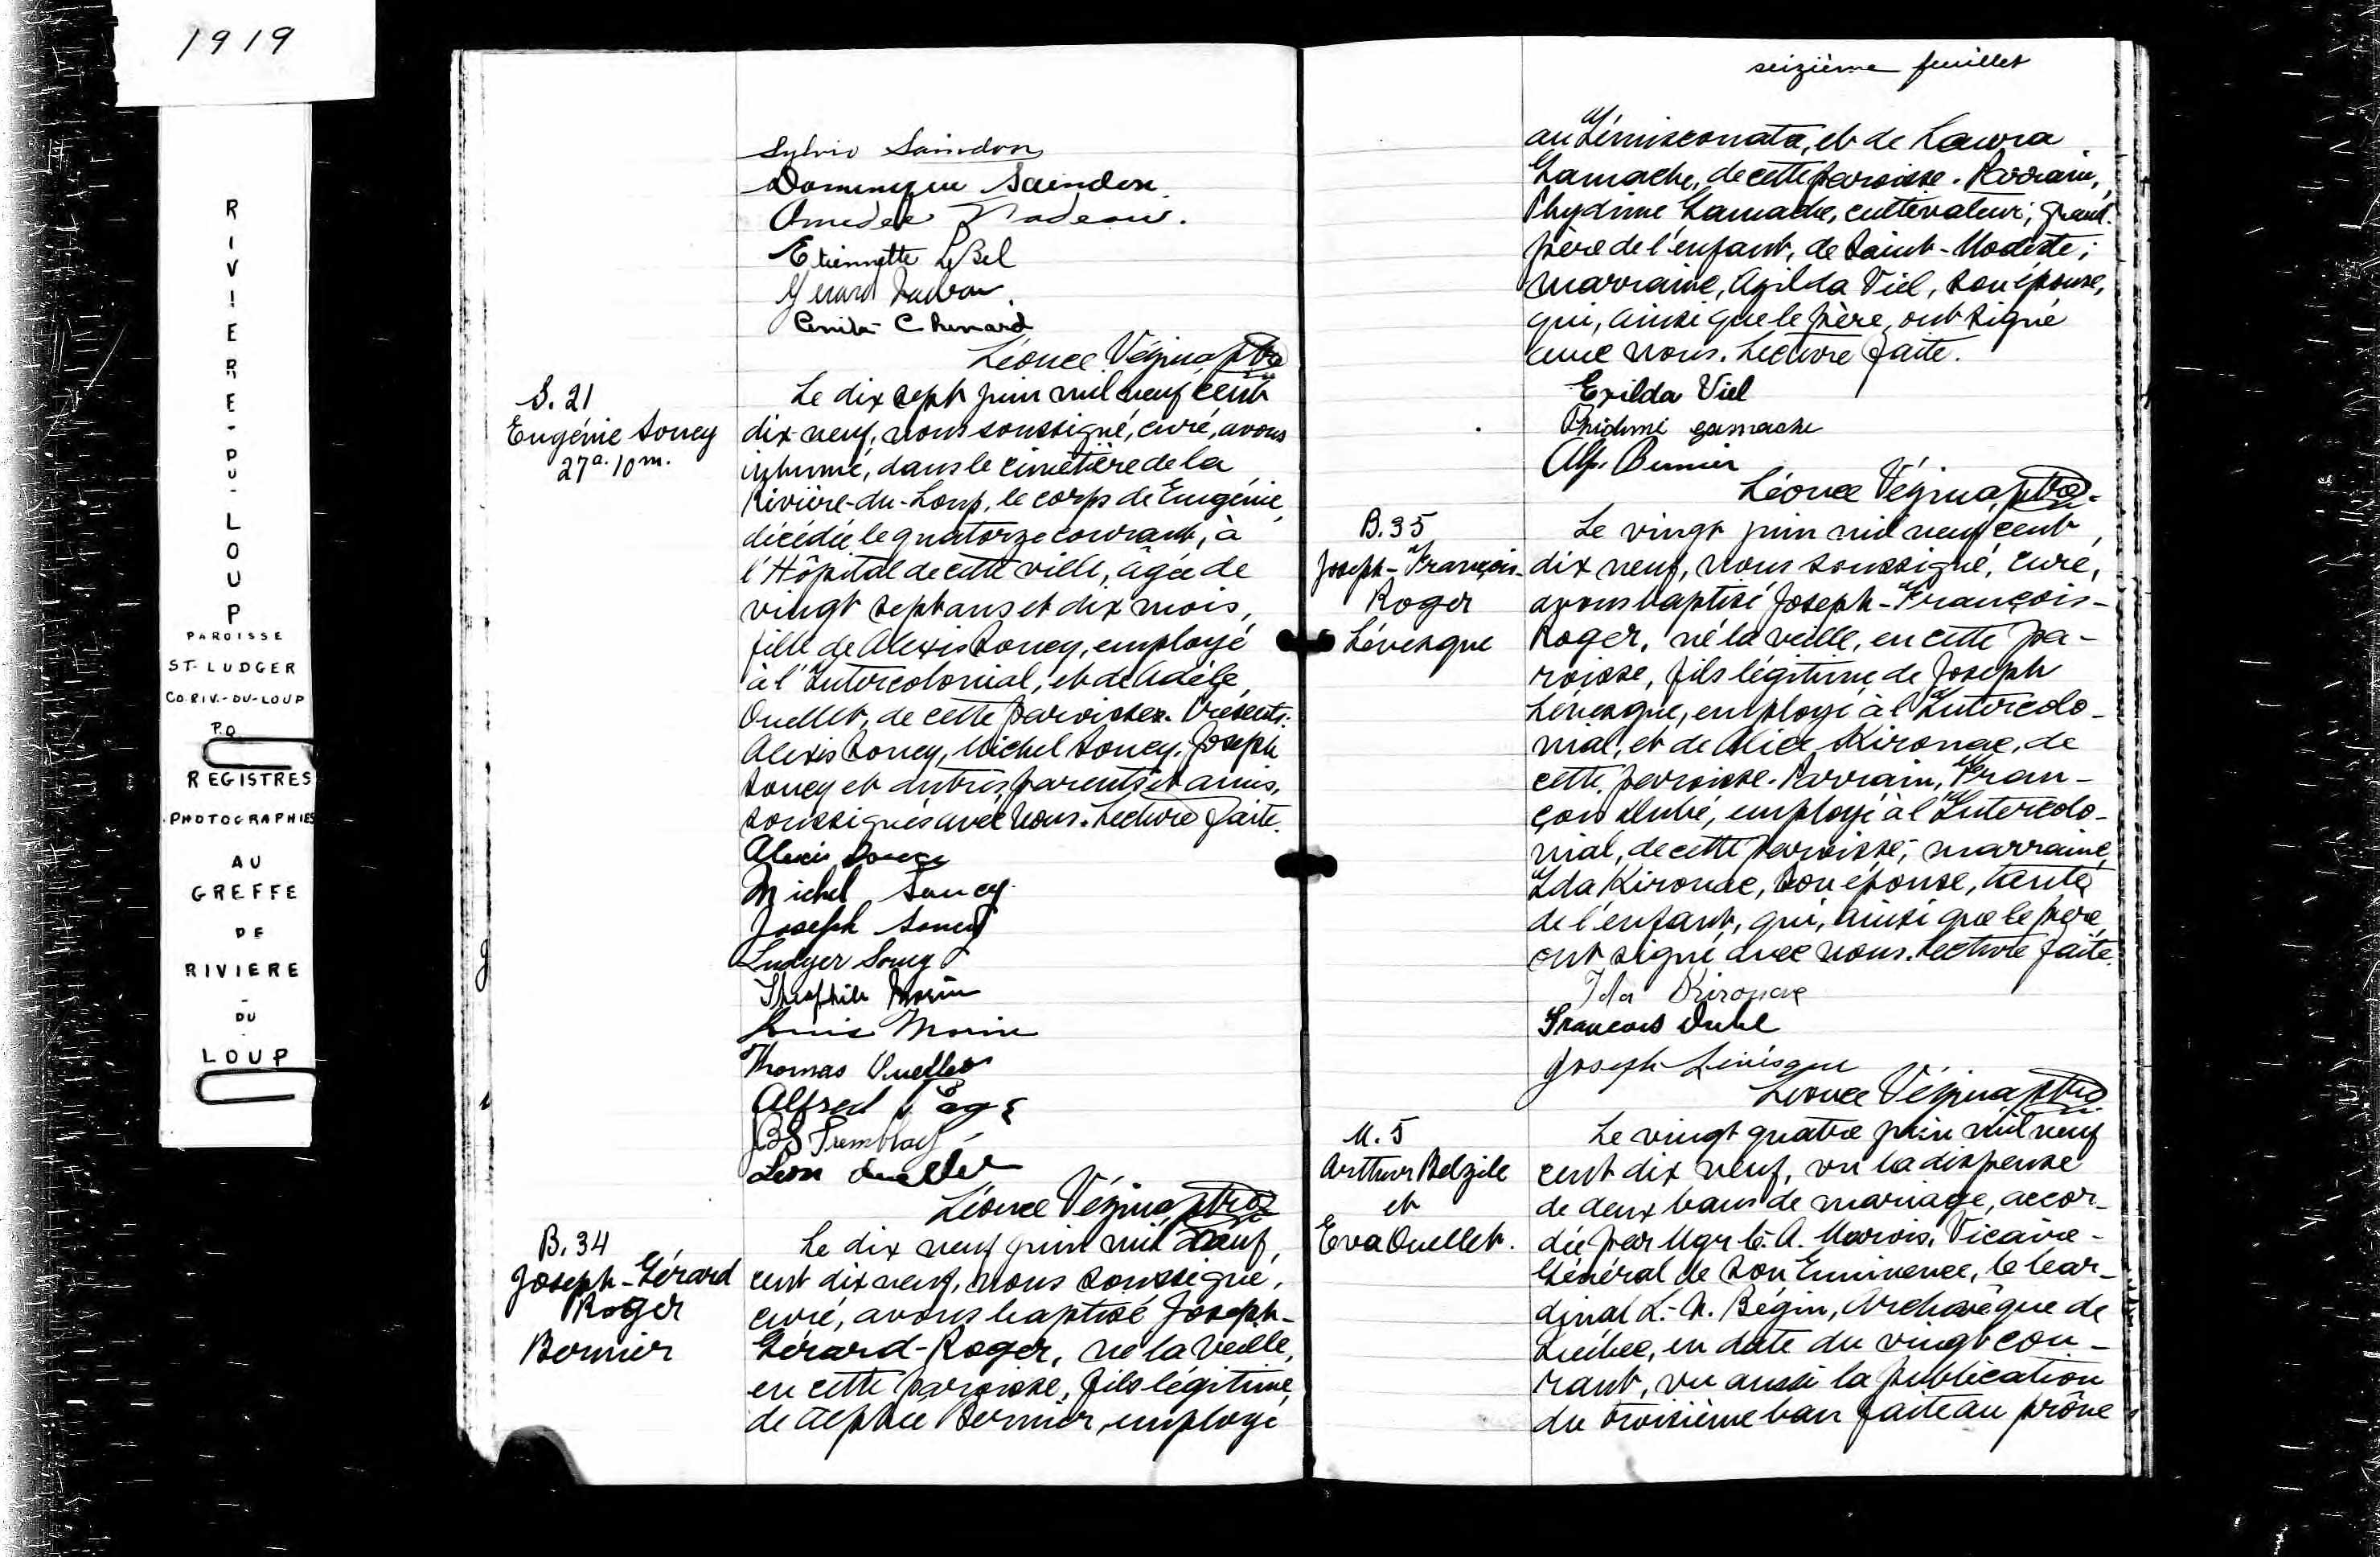 1919
RIVIERE-DU-LOUP
PAROISSE
ST-LUDGER
CO. RIV.-DU-LOUP
P.Q
REGISTRES
PHOTOGRAPHIES
AU
GREFFE
DE
RIVIERE
-
DU
-
LOUP
Sylvio Saindon
Dominique Saindon
Amedée Nadeau.
Etiennette LeBel
Gérard
Chenard
Léonce Vézina, ptre
S. 21
Eugénie Soucy
27a. 10m.
Le dix sept juin mil neuf cent
dix neuf, nous soussigné, curé, avons
inhumé, dans le cimetière de la
Rivière-du-Loup, le corps de Eugénie,
décédée le quatorze courant, à
l'Hôpital de cette ville, âgée de
vingt sept ans et dix mois,
fille de Alexis Soucy, employé
à l'Intercolonial, et de Adèle
Ouellet, de cette paroisse. Présents:
Alexis Soucy, Michel Soucy, Joseph
Soucy et autres parents et amis,
soussignés avec nous. Lecture faite.
Alexis Soucy
Michel Soucy
Joseph Soucy
Ludger Soucy
Théophile Morin
Louis Morin
Thomas Ouellet
Alfred
JBS Tremblay
Léon Ouellet
Léonce Vézina, ptre
B. 34
Joseph-Gérard
Roger
Bernier
Le dix neuf juin mil neuf
cent dix neuf, nous soussigné,
curé, avons baptisé Joseph-
Gérard-Roger, né la veille,
en cette paroisse, fils légitime
de Alphée Bernier, employé
seizième feuillet
au Témisconata, et de Laura
Gamache, de cette paroisse. Parrain,
Phydime Gamache, cultivateur, grand-
père de l'enfant, de Saint-Modeste;
marraine, Exilda Viel, son épouse,
qui, ainsi que le père, ont signé
avec nous. Lecture faite.
Exilda Viel
Phidime gamache
Alp. Bernier
Léonce Vézina, ptre.
B. 35
Joseph-François-
Roger
Lévesque
Le vingt juin mil neuf cent
dix neuf, nous soussigné, curé,
avons baptisé Joseph-François-
Roger, né la veille, en cette pa-
roisse, fils légitime de Joseph
Lévesque, employé à l'Intercolo-
nial, et de Alice Kirouac, de
cette paroisse. Parrain, Fran-
çois Dubé, employé à l'Intercolo-
nial, de cette paroisse; marraine,
Ida Kirouac, son épouse, tante
de l'enfant, qui, ainsi que le père,
ont signé avec nous. Lecture faite.
Ida Kirouac
Francois Dubé
Joseph Lévesque
Léonce Vézina ptre
M. 5
Arthur Belzile
et
Eva Ouellet.
Le vingt quatre juin mil neuf
cent dix neuf, vu la dispense
de deux bans de mariage, accor-
dée par Mgr C. A. Marois, Vicaire-
Général de Son Eminence, le Car-
dinal L.-N. Bégin, Archevêque de
Québec, en date du vingt cou-
rant, vu aussi la publication
du troisième ban faite au prône